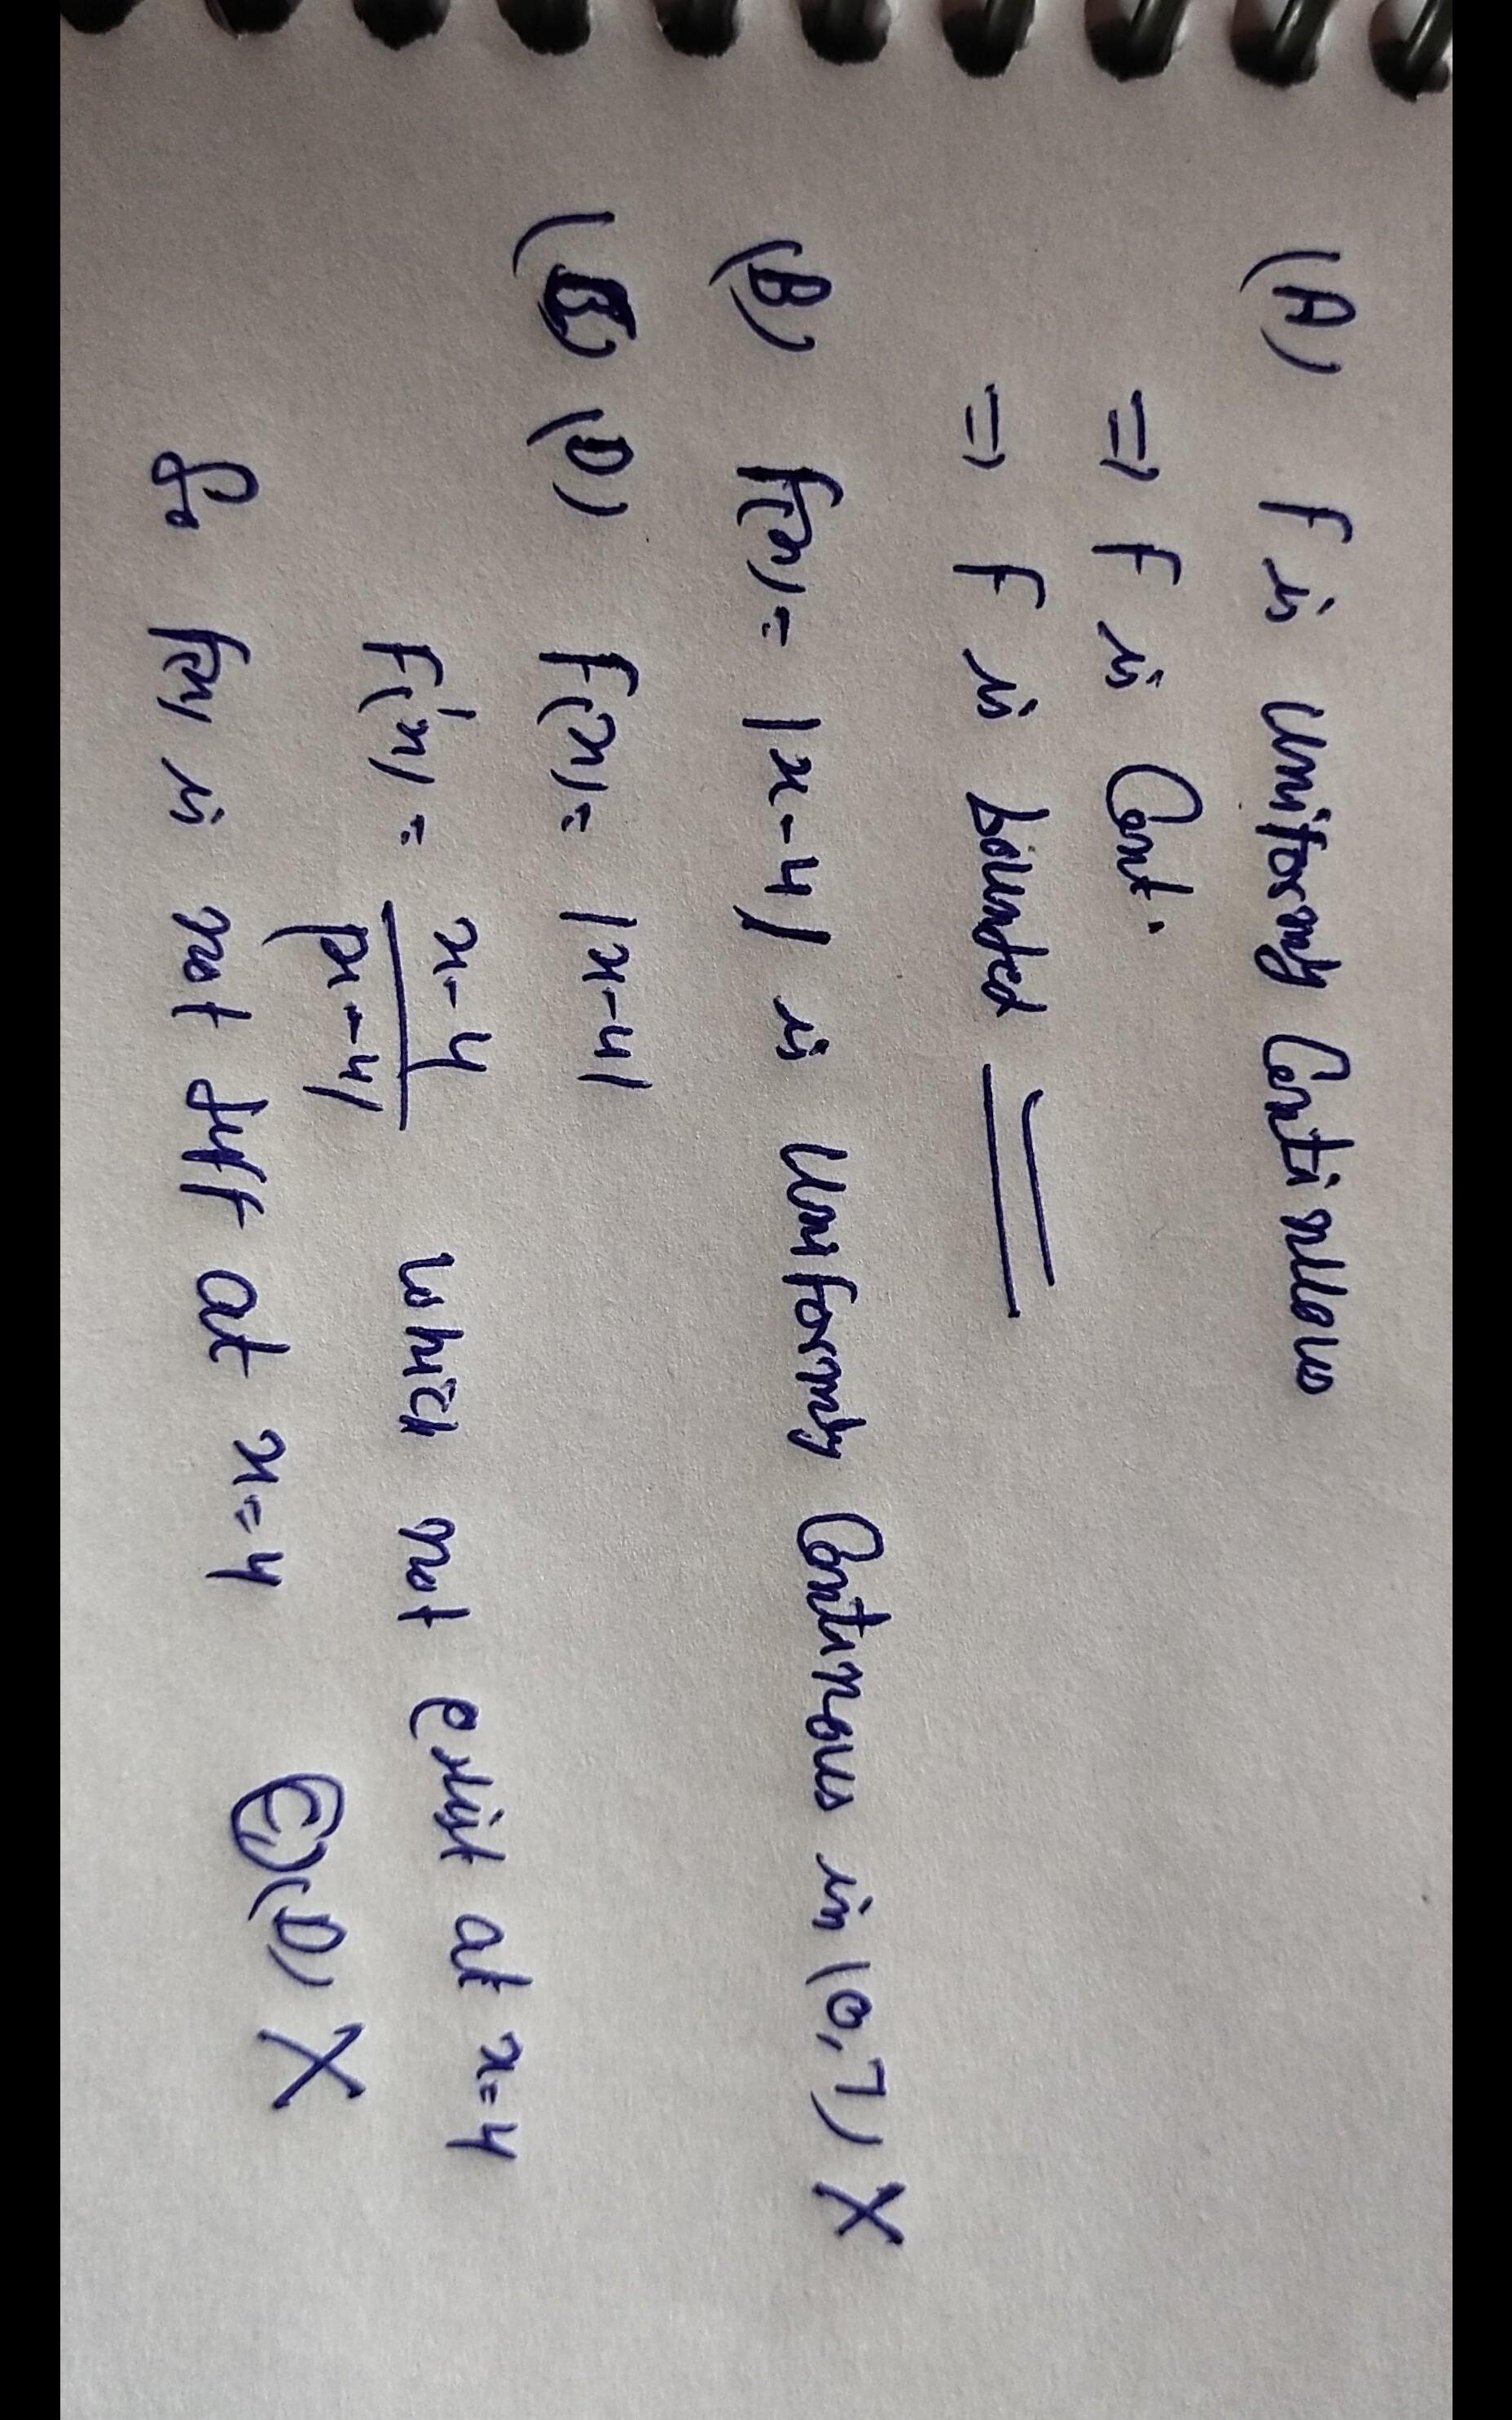 (A) f is Uniformly Continuous
⇒ f is Cont.
⇒ f is bounded
(B) f(x) = |x-4| is Uniformly Continuous in (0,7) X
(D) f(x) = |x-4|
f'(x) = x-4 / |x-4| which not exist at x=4
So f(x) is not diff at x=4 (C) (D) X